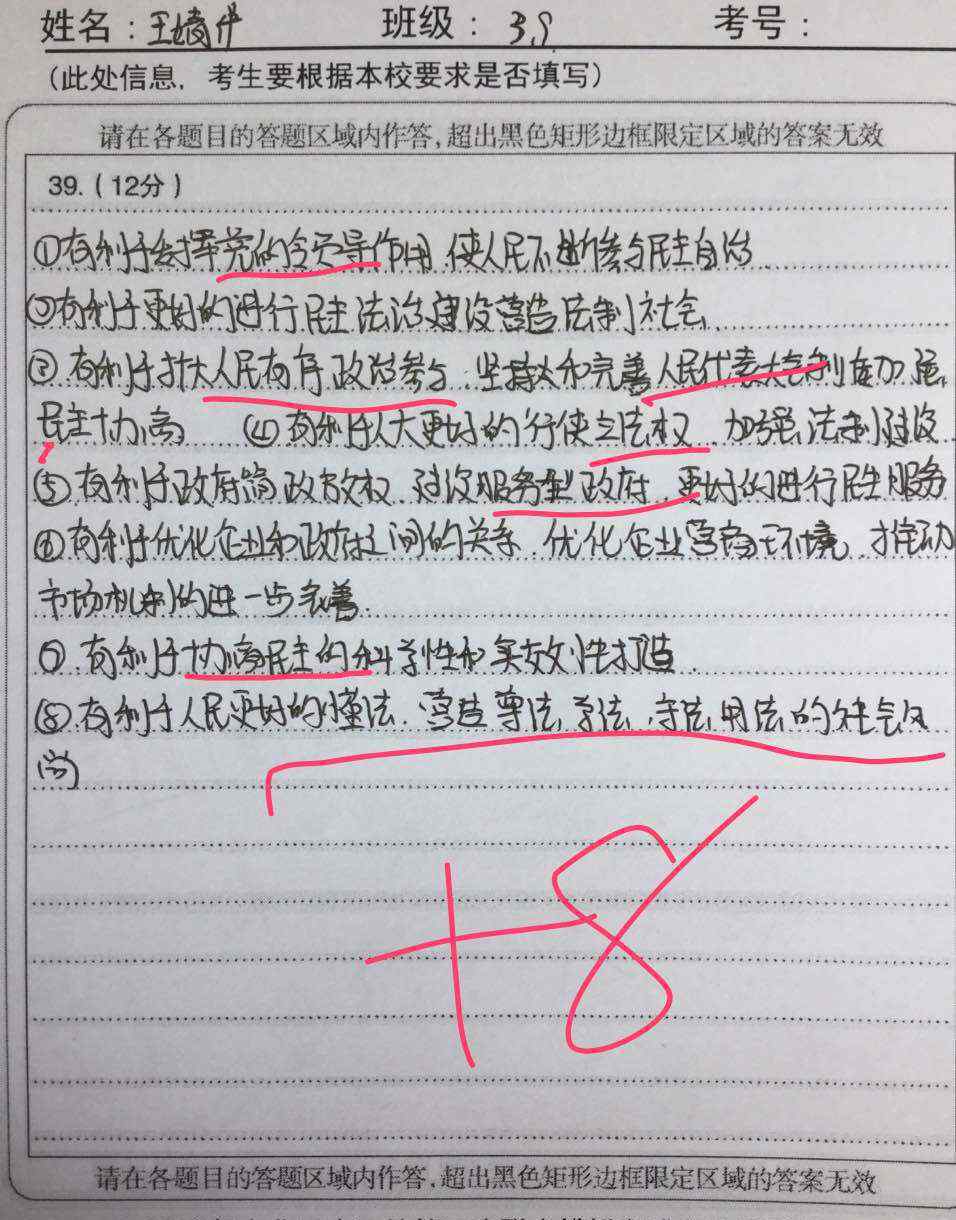 姓名：王婧伊 班级：3.9 考号：
(此处信息，考生要根据本校要求是否填写)
请在各题目的答题区域内作答,超出黑色矩形边框限定区域的答案无效
39.(12分)
①有利于发挥党的领导作用 使人民不断参与民主自治
②有利于更好的进行民主法治建设营造法制社会
③有利于扩大人民有序政治参与.坚持和完善人民代表大会制度加强
民主协商 ④有利于人大更好的行使立法权 加强法制建设
⑤有利于政府简政放权 建设服务型政府.更好的进行民生服务
⑥有利于优化企业和政府之间的关系.优化企业营商环境 推动
市场机制的进一步完善.
⑦有利于协商民主的科学性和实效性打造
⑧有利于人民更好的懂法.营造尊法学法.守法用法的社会风
尚
+8
请在各题目的答题区域内作答,超出黑色矩形边框限定区域的答案无效